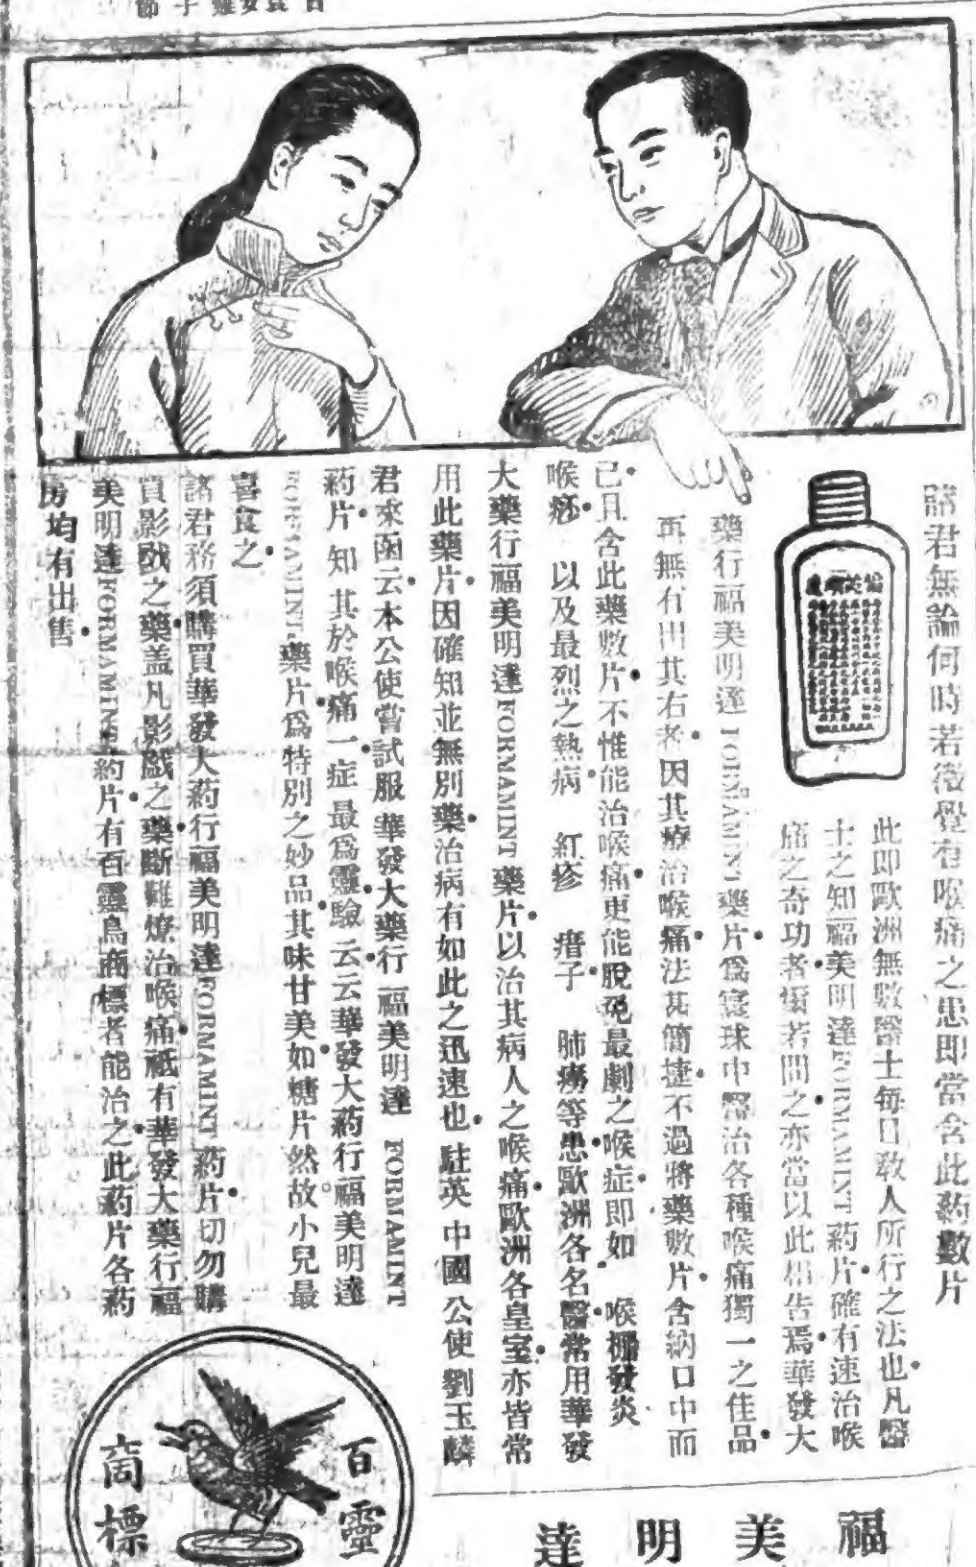 諸君無論何時若微覺有喉痛之患即當含此葯數片
此即歐洲無數醫士每日教人所行之法也凡醫
士之知福美明達FORMAMINT葯片確有速治喉
痛之奇功者倘若問之亦當以此相告焉華發大
藥行福美明達FORMAMINT藥片爲寰球中醫治各種喉痛獨一之佳品
再無有出其右者因其療治喉痛法甚簡捷不過將藥數片含納口中而
已且含此藥數片不惟能治喉痛更能脫免最劇之喉症即如 喉棚發炎
喉痧 以及最烈之熱病 紅疹 瘄子 肺癆等患歐洲各名醫常用華發
大藥行福美明達FORMAMINT藥片以治其病人之喉痛歐洲各皇室亦皆常
用此藥片因確知並無別藥治病有如此之迅速也駐英中國公使劉玉麟
君來函云本公使嘗試服華發大藥行福美明達 FORMAMINT
葯片知其於喉痛一症最爲靈驗云云華發大葯行福美明達
FORMAMINT藥片爲特別之妙品其味甘美如糖片然故小兒最
喜食之
諸君務須購買華發大葯行福美明達FORMAMINT葯片切勿購
買影戤之藥盖凡影戤之藥斷難療治喉痛祇有華發大藥行福
美明達FORMAMINT葯片有百靈鳥商標者能治之此葯片各葯
房均有出售
百靈
商標
福美明達